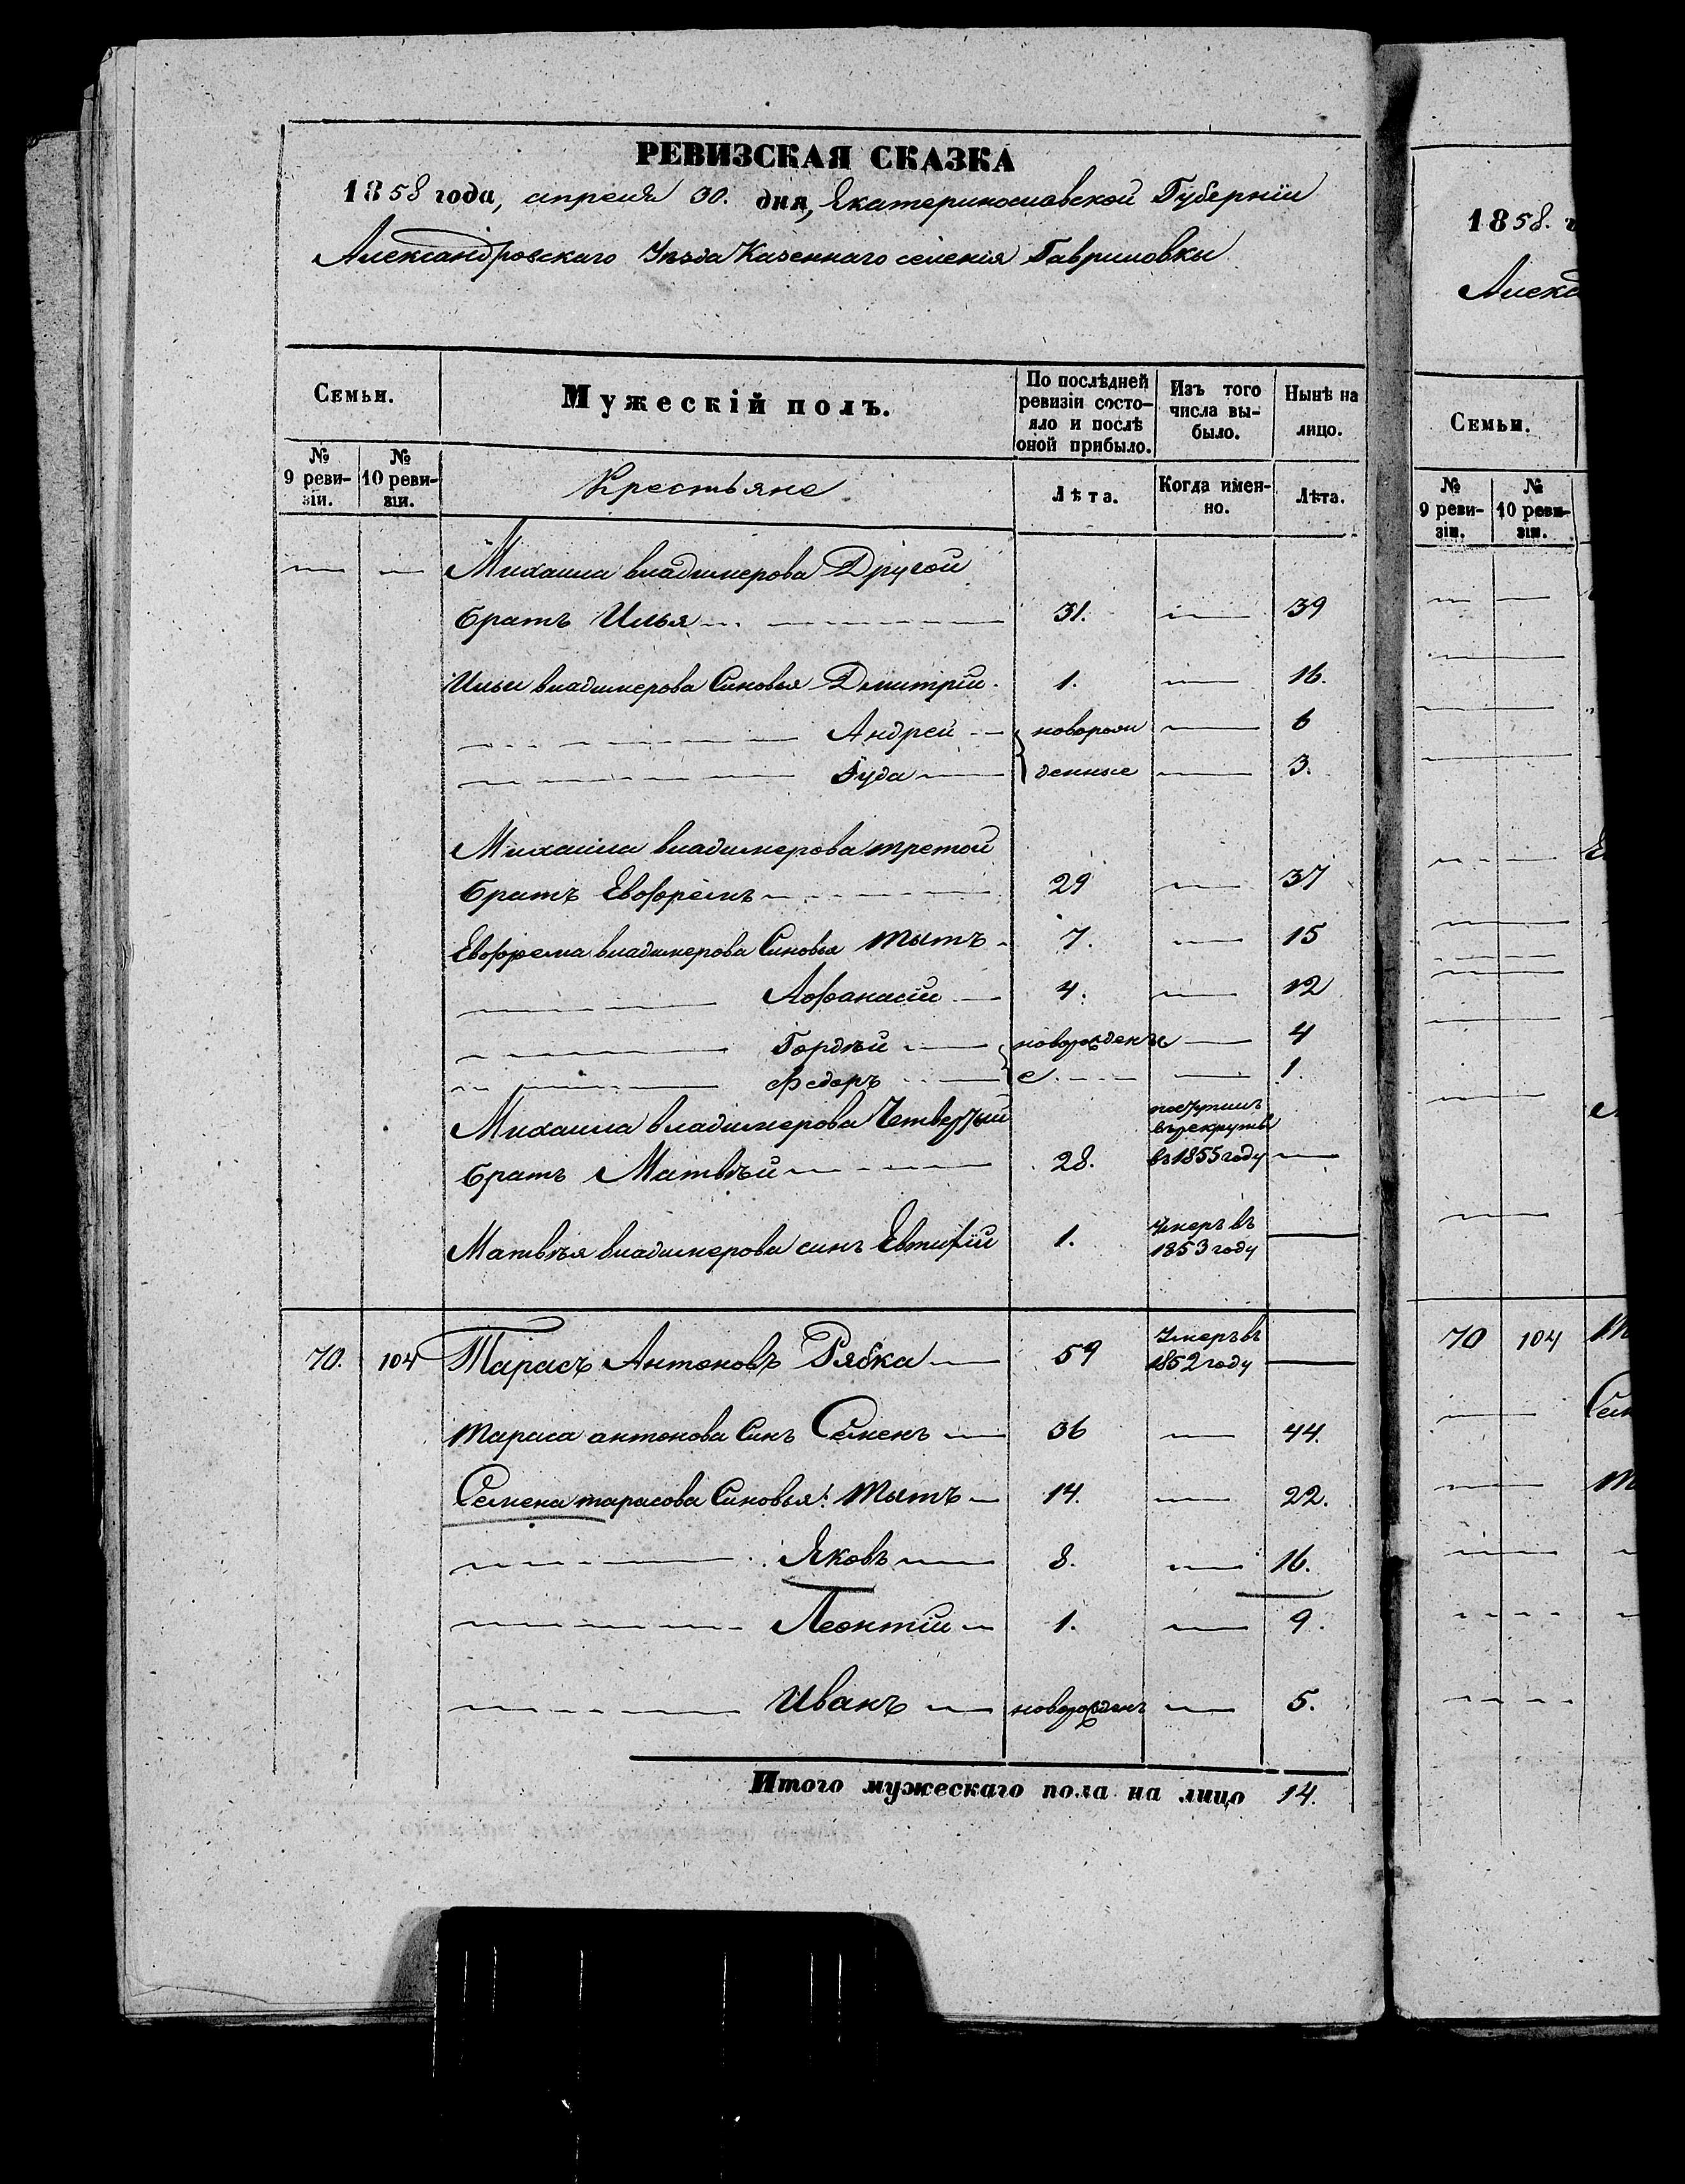 РЕВИЗСКАЯ СКАЗКА
1858 года, апреля 30. дня, Екатеринославской Губерніи
Александровскаго Уѣзда Казеннаго селенія Гавриловки
Семьи.
Мужескій полъ.
По послѣдней ревизіи состо-
яло и послѣ оной прибыло.
Изъ того числа вы-
было.
Нынѣ на лицо.
№ 9 реви-
зіи.
№ 10 реви-
зіи.
Крестьяне
Лѣта.
Когда имен-
но.
Лѣта.
Михаила владимерова Другой
братъ Илья 31. 39
Ильи владимерова Синовья Дмитрій 1. 16.
Андрей новорож 6
Іуда денные 3.
Михаила владимерова третой
братъ Евофремъ 29 37
Евофрема владимерова Синовья Тытъ 7. 15
Афанасій 4. 12
Гордѣй новорожденны 4
Федоръ е 1.
Михаила владимерова Четвертый поступилъ
въ рекруты
братъ Матвѣй 28. въ 1855 году
Матвѣя владимерова синъ Евтифій 1. Умеръ въ
1853 году
70. 104 Тарасъ Антоновъ Рябка 59 Умеръ въ
1852 году
Тараса антонова Синъ Семенъ 36 44.
Семена тарасова Синовья: Тытъ 14. 22.
Яковъ 8. 16.
Леонтій 1. 9.
Иванъ новорожденъ 5.
Итого мужескаго пола на лицо 14.
1858. г
Алекса
Семьи.
№ 9 реви-
зіи.
№ 10 реви-
зіи.
70 104